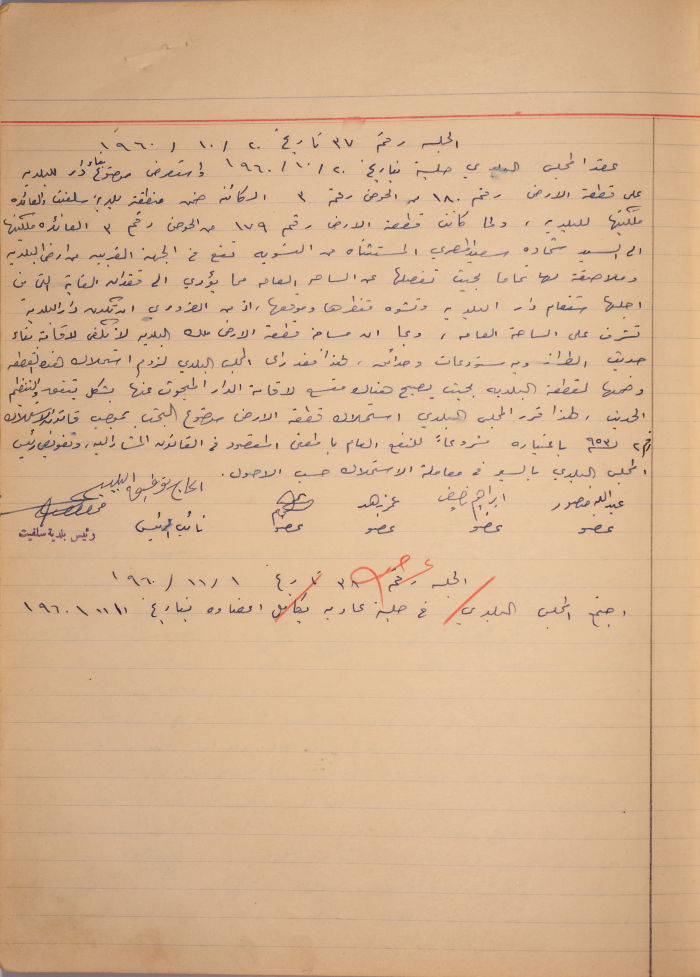 الجلسة رقم ٣٧ تاريخ ٢٠ / ١٠ / ١٩٦٠
عقد المجلس البلدي جلسة بتاريخ ٢٠ / ١٠ / ١٩٦٠ واستعرض موضوع بناء دار للبلدية
على قطعة الارض رقم ١٨٠ من الحوض رقم ٣ الكائنة ضمن منطقة بلدية سلفيت والعائده
ملكيتها للبلدية ، ولما كانت قطعة الارض رقم ١٧٩ من الحوض رقم ٣ العائده ملكيتها
الى السيد شحاده سعيد المصري المستثناه من التسويه تقع في الجهة الغربية من ارض البلدية
وملاصقة لها تماما بحيث تفصلها عن الساحه العامه مما يؤدي الى فقدان الغاية التي من
اجلها ستقام دار البلديه وتشوه منظرها وموقعها ، اذ من الضروري ان تكون دار البلدية
تشرف على الساحة العامه ، وبما ان مساحة قطعة الارض ملك البلديه لا تكفي لاقامة بناء
حديث الطراز وبه مستودعات وحدائق ، لهذا فقد رأى المجلس البلدي لزوم استملاك هذه القطعه
وضمها لقطعة البلديه بحيث يصبح هناك متسع لاقامة الدار المبحوث عنها بشكل يتفق والتنظيم
الحديث ، لهذا قرر المجلس البلدي استملاك قطعة الارض موضوع البحث بموجب قانون الاستملاك
رقم ٢ لسنة ٩٥٣ باعتباره مشروعاً للنفع العام بالمعنى المقصود في القانون المشار اليه ، وتفويض رئيس
المجلس البلدي بالسير في معاملة الاستملاك حسب الاصول .
عبدالله منصور ابراهيم عمر زهد الحاج توفيق
عضو عضو عضو عضو نائب الرئيس رئيس بلدية سلفيت
الجلسه رقم ٣٨ تاريخ ١ / ١١ / ١٩٦٠
اجتمع المجلس البلدي في جلسة عاديه بكامل اعضاءه بتاريخ ١ / ١١ / ١٩٦٠